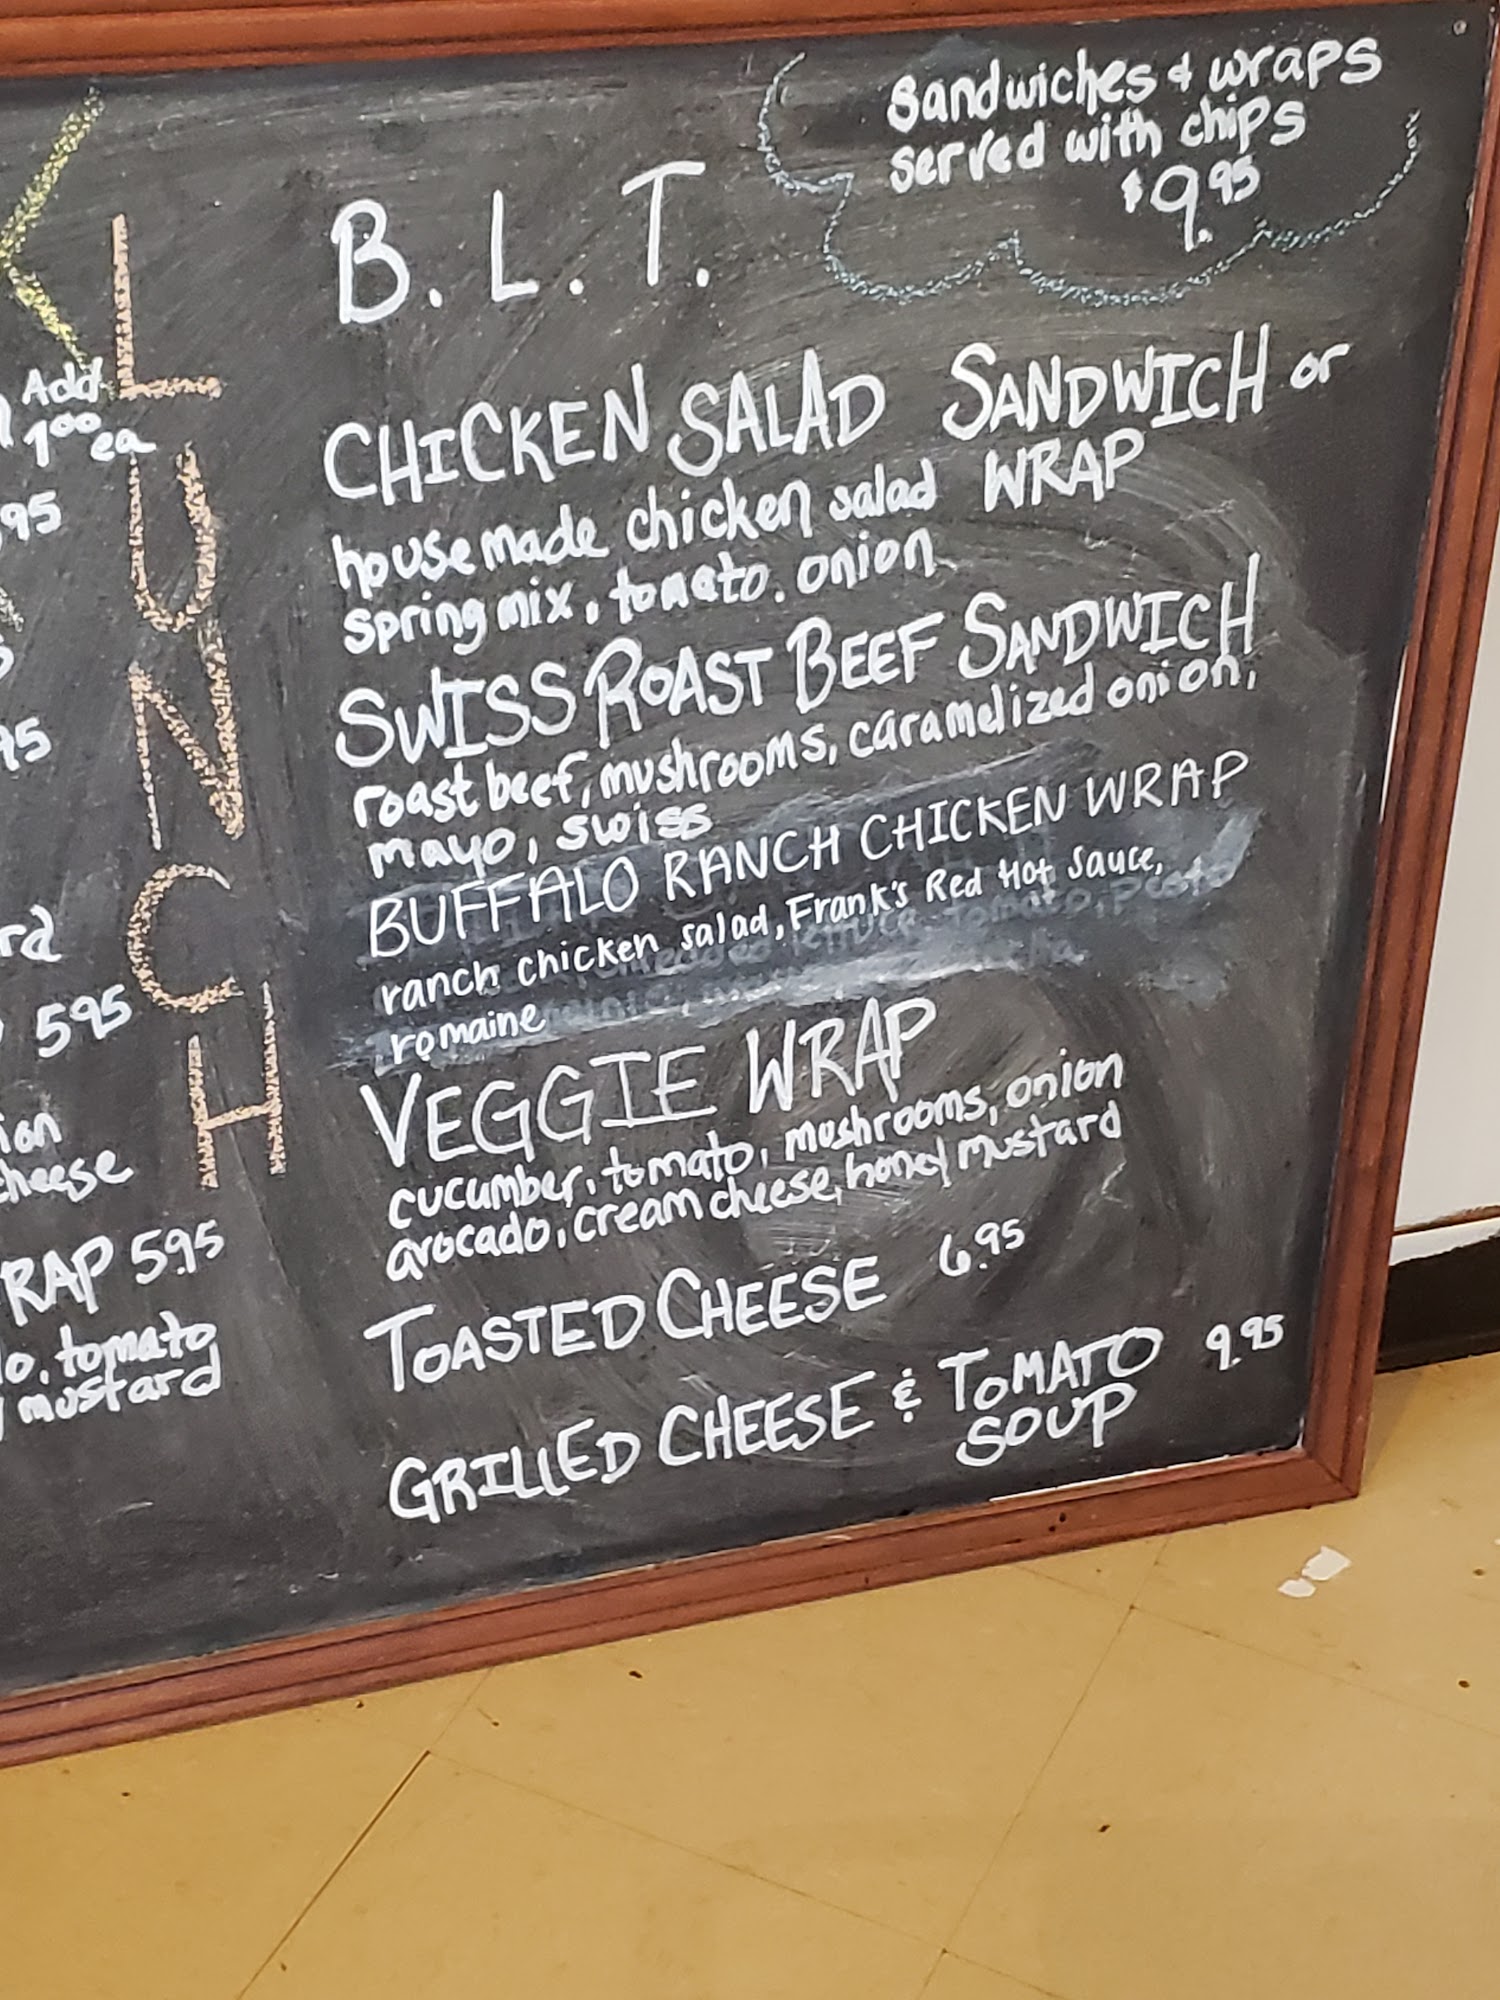 Add
1.00 ea
95
95
rd
5.95
ion
cheese
RAP 5.95
lo, tomato
mustard
LUNCH
Sandwiches & wraps
served with chips
$9.95
B. L. T.
CHICKEN SALAD SANDWICH or
WRAP
house made chicken salad
spring mix, tomato. onion
SWISS ROAST BEEF SANDWICH
roast beef, mushrooms, caramelized onion,
mayo, swiss
BUFFALO RANCH CHICKEN WRAP
ranch chicken salad, Frank's Red Hot Sauce,
romaine
VEGGIE WRAP
cucumber, tomato, mushrooms, onion
avocado, cream cheese, honey mustard
TOASTED CHEESE 6.95
GRILLED CHEESE & TOMATO 9.95
SOUP